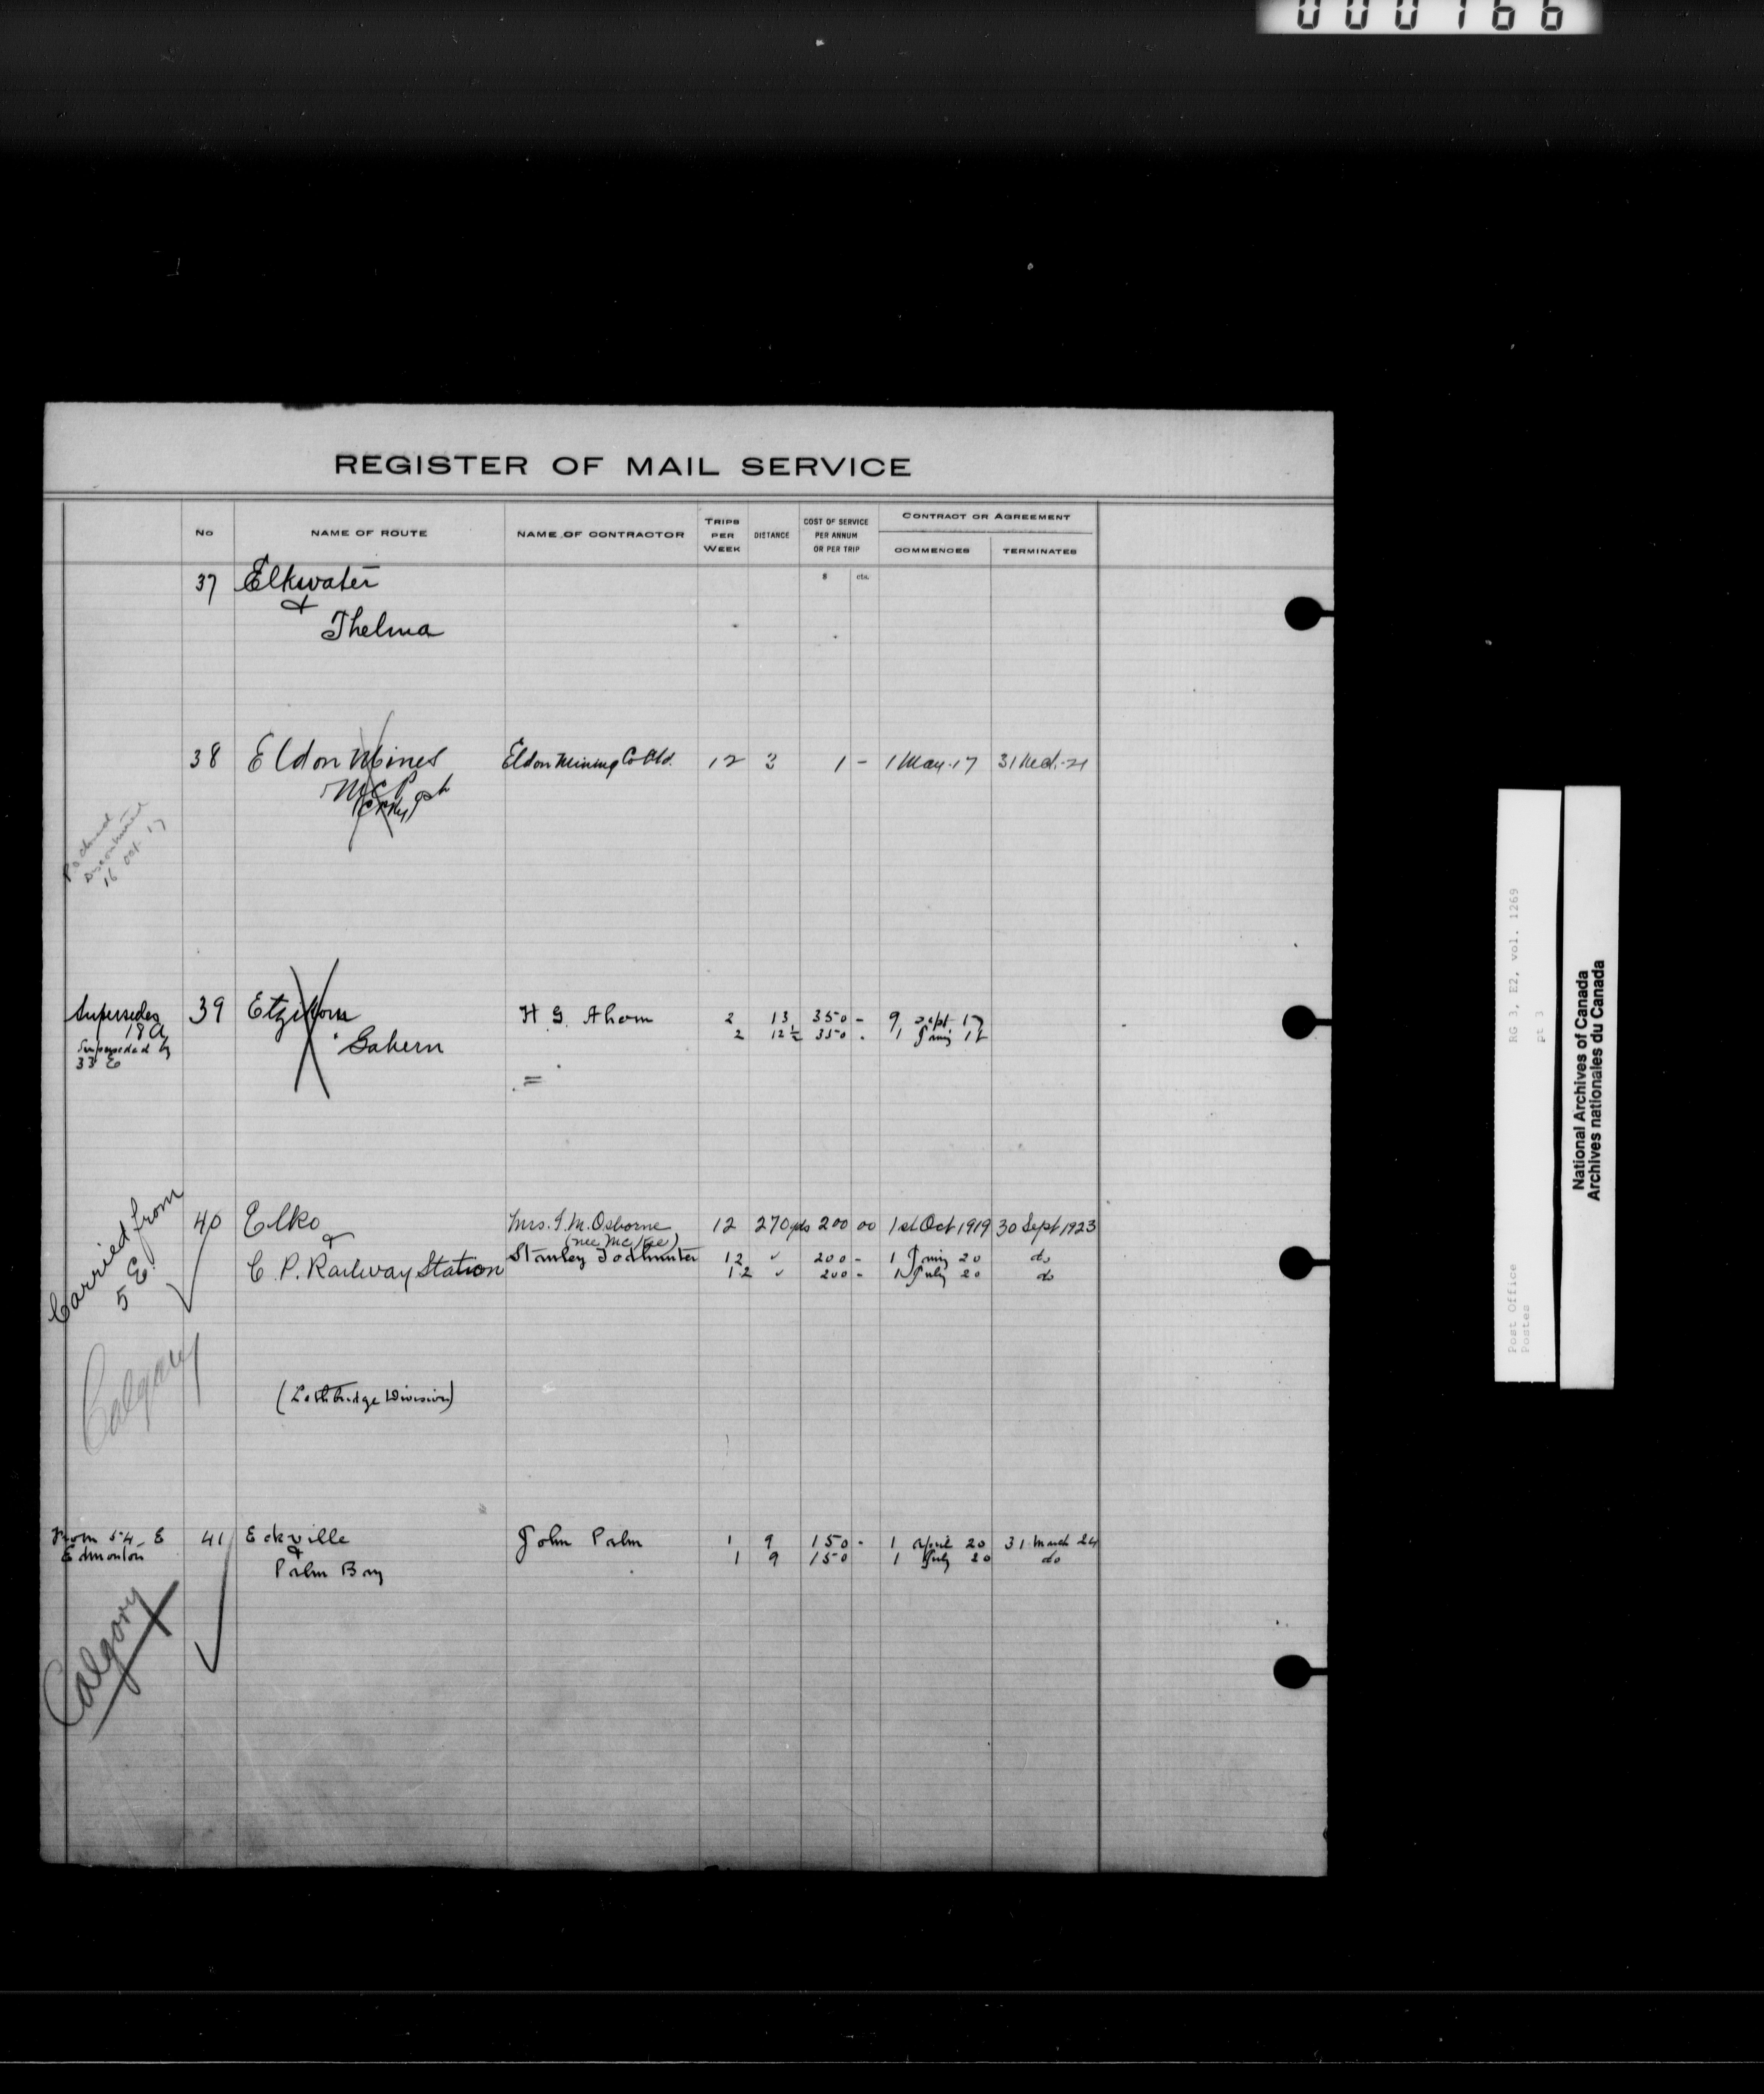 000166
REGISTER OF MAIL SERVICE
No NAME OF ROUTE NAME OF CONTRACTOR TRIPS PER WEEK DISTANCE COST OF SERVICE PER ANNUM OR PER TRIP CONTRACT OR AGREEMENT COMMENCES TERMINATES
$ cts.
37 Elkwater
&
Thelma
38 Eldon Mines Eldon Mining Co Ltd. 12 3 1 - 1 May 17 31 Mch. 21
16 Oct 17
Supersedes 39 Etzikom H. G. Ahorn 2 13 350 - 9 Sept 17
18 A 2 12½ 350 - 1
Superseded by Gahern
33 E
Carried from 40 Elko Mrs. I. M. Osborne 12 270 yds 200 00 1st Oct 1919 30 Sept 1923
5 E. & (nee McKee)
C. P. Railway Station Stanley Todhunter 12 " 200 - 1 Jany 20 do
12 " 200 - 1 July 20 do
Calgary
(Lethbridge Division)
From 54 E 41 Eckville John Palm 1 9 150 - 1 April 20 31 March 24
Edmonton & 1 9 150 1 July 20 do
Palm Bay
Calgary
RG 3, E2, vol. 1269
pt 3
Post Office
Postes
National Archives of Canada
Archives nationales du Canada